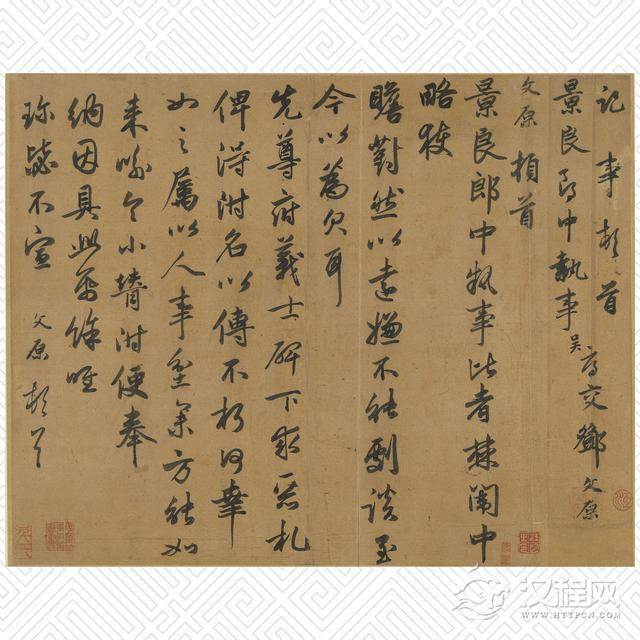 記事頓首
景良郎中執事 吳交鄧文原
文原頓首
景良郎中執事比者棘闈中
略獲
瞻對然以遠嫌不能劇談至
今以為欠耳
先尊府義士碑下求惡札
俾得附名以傳不朽何幸
如之屬以人事坌集方能如
來喻今小壻附便奉
納因具此餘唯
珍毖不宣 文原頓首
汉程网
WWW.HTTPCN.COM